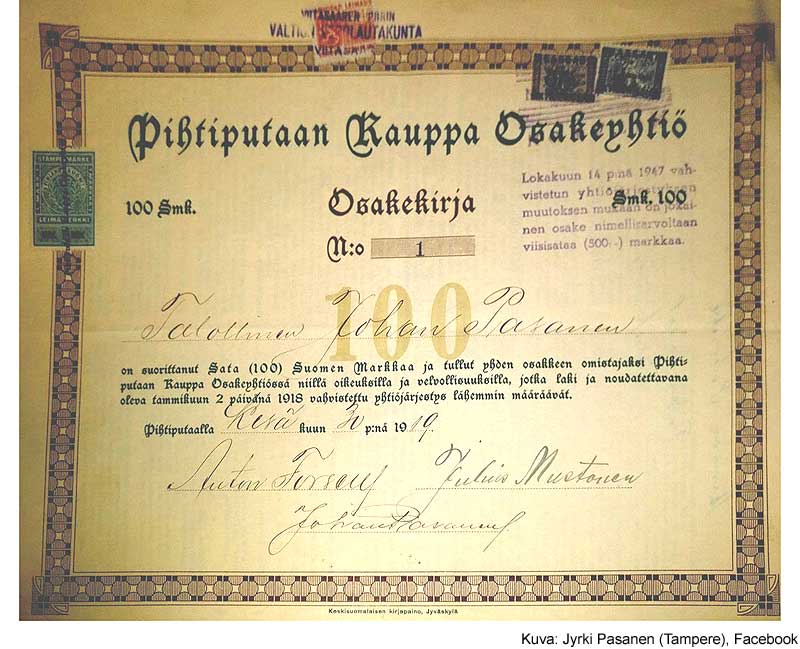 VIITASAAREN PIIRIN
VALTION LAUTAKUNTA
Pihtiputaan Kauppa Osakeyhtiö
STÄMPELMÄRKE
LEIMAMERKKI
100 Smk.
Osakekirja
Smk. 100
Lokakuun 14 p:nä 1947 vah-
vistetun yhtiöjärjestyksen
muutoksen mukaan on jokai-
nen osake nimellisarvoltaan
viisisataa (500:-) markkaa.
N:o 1
100
Talollinen Johan Pasanen
on suorittanut Sata (100) Suomen Markkaa ja tullut yhden osakkeen omistajaksi Pihti-
putaan Kauppa Osakeyhtiössä niillä oikeuksilla ja velvollisuuksilla, jotka laki ja noudatettavana
oleva tammikuun 2 päivänä 1918 vahvistettu yhtiöjärjestys lähemmin määräävät.
Pihtiputaalla Kesä kuun 30 p:nä 1919.
Anton Julius Mustonen
Johan Pasanen
Keskisuomalaisen kirjapaino, Jyväskylä
Kuva: Jyrki Pasanen (Tampere), Facebook